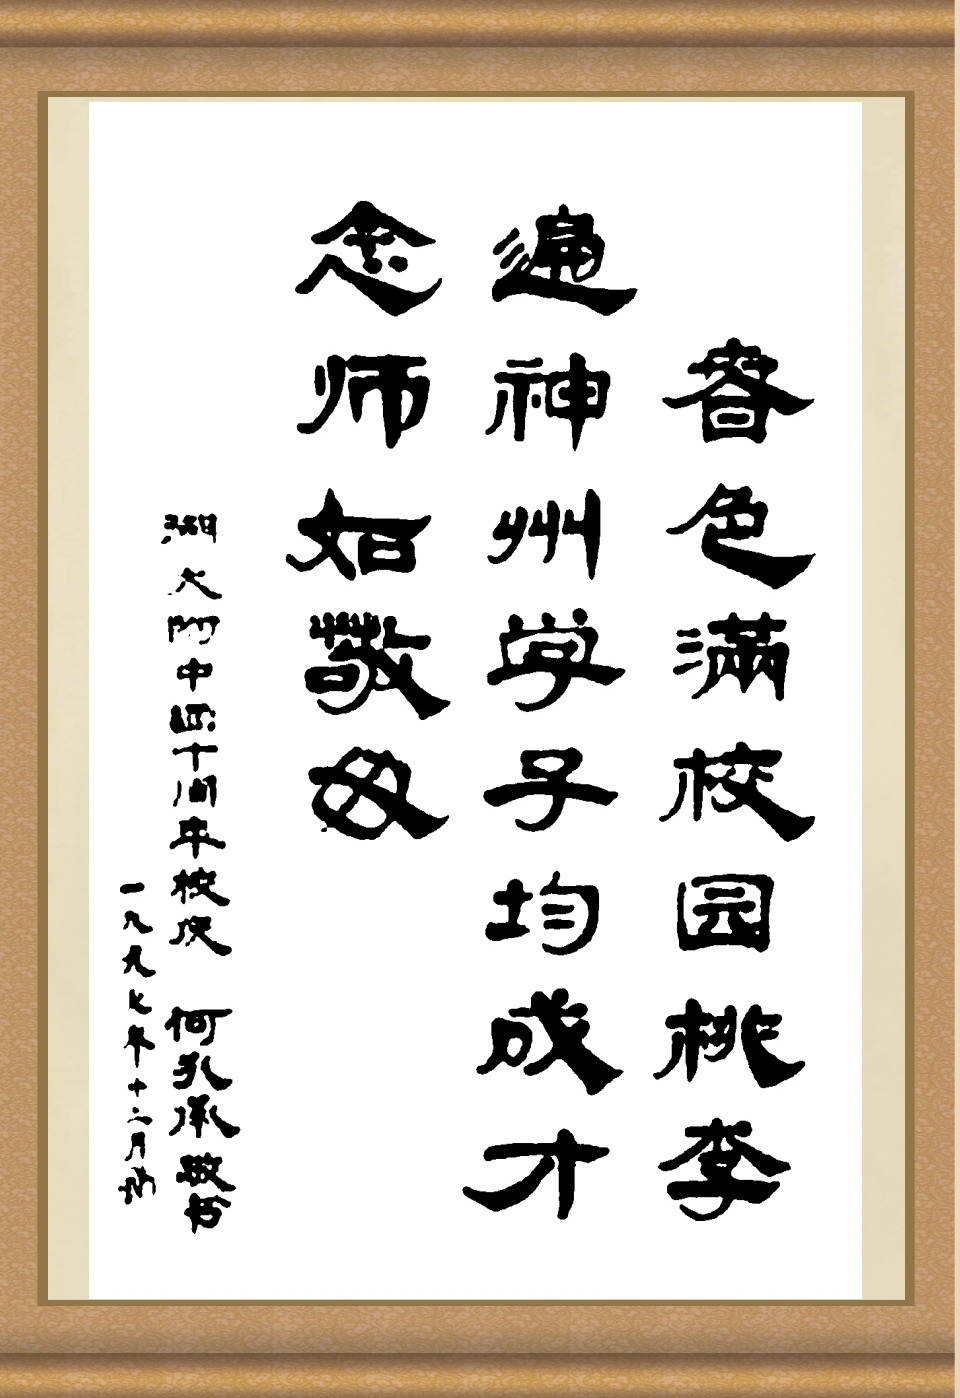 春色满校园桃李
遍神州学子均成才
念师如敬母
湖大附中四十周年校庆 何孔承敬书
一九九七年十二月